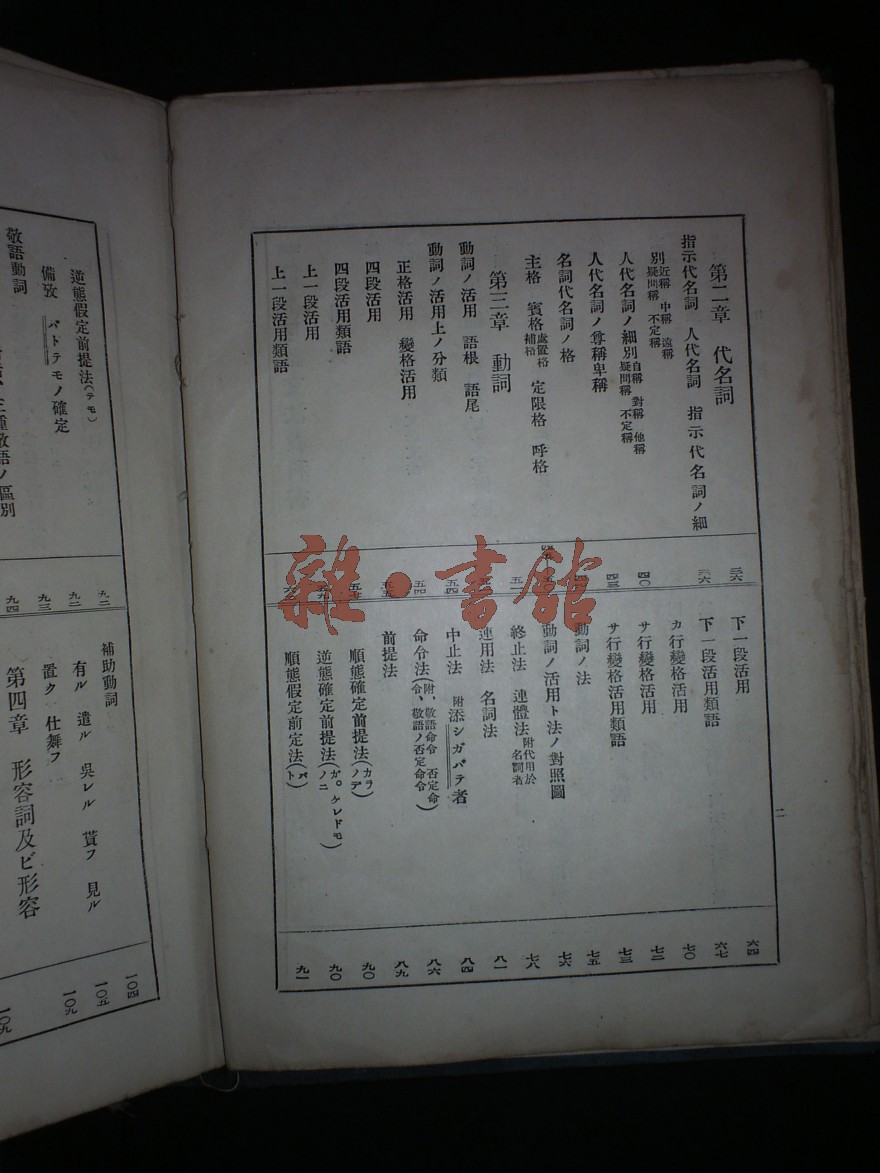 第二章 代名詞
指示代名詞 人代名詞 指示代名詞ノ細
別 近稱 中稱 遠稱 疑問稱 不定稱
人代名詞ノ細別 自稱 對稱 他稱 疑問稱 不定稱
人代名詞ノ尊稱卑稱
名詞代名詞ノ格
主格 賓格 處置格 補格 定限格 呼格
第三章 動詞
動詞ノ活用 語根 語尾
動詞ノ活用上ノ分類
正格活用 變格活用
四段活用
四段活用類語
上一段活用
上一段活用類語
三六
三六
四〇
四三
五一
五四
五四
下一段活用
下一段活用類語
カ行變格活用
サ行變格活用
サ行變格活用類語
動詞ノ法
動詞ノ活用ト法ノ對照圖
終止法 連體法
連用法 名詞法
中止法 附 添シガバテ者
命令法(附、敬語命令 否定命令、敬語ノ否定命令)
前提法
順態確定前提法(カラ ノデ)
逆態確定前提法(ガ。ケレドモ ノニ)
順態假定前定法(バ ト)
六四
六七
七〇
七二
七三
七五
七六
七八
八一
八四
八六
八九
九〇
九〇
九一
二
逆態假定前提法(テモ)
備攷 バトテモノ確定
敬語動詞
種敬語ノ區別
九二
九二
九三
九四
補助動詞
有ル 遣ル 吳レル 貰フ 見ル
置ク 仕舞フ
第四章 形容詞及ビ形容
一〇四
一〇五
一〇九
一〇九
雜·書館